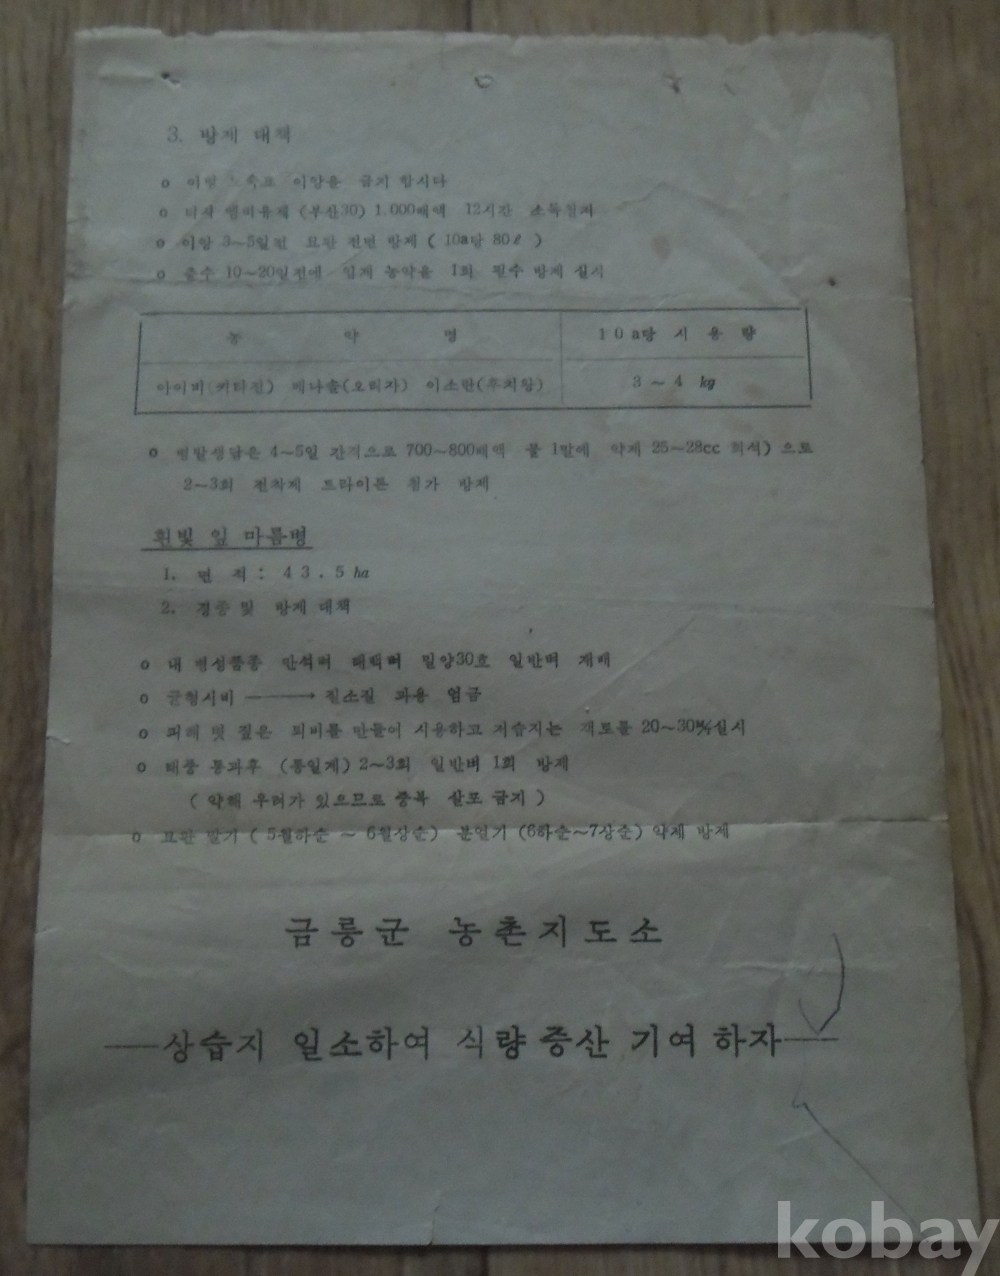 3. 방제 대책
o 이병 이앙을 금기 합시다
o 티시 엠미유제 (부산30) 1.000배액 12시간 소독철저
o 이앙 3~5일전 묘판 전면 방제 ( 10a당 80ℓ )
o 출수 10~20일전에 입제 농약을 1회 필수 방제 실시
농 약 명 10a당 시용량
아이비(키타진) 메나솔(오리자) 이소란(후치왕) 3 ~ 4 kg
o 병발생답은 4~5일 간격으로 700~800배액 물 1말에 약제 25~28cc 희석) 으로
2~3회 전착제 트라이톤 첨가 방제
흰빛 잎 마름병
1. 면 적 : 43.5 ha
2. 경종 및 방제 대책
o 내 병성품종 만석벼 태백벼 밀양30호 일반벼 재배
o 균형시비 ———→ 질소질 과용 엄금
o 피해 볏 짚은 퇴비를 만들어 시용하고 저습지는 개토를 20~30% 실시
o 태풍 통과후 (통일계) 2~3회 일반벼 1회 방제
( 약해 우려가 있으므로 중복 살포 금지 )
o 묘판 말기 ( 5월하순 ~ 6월상순) 분얼기 (6하순~7상순) 약제 방제
금릉군 농촌지도소
——상습지 일소하여 식량증산 기여하자——
kobay